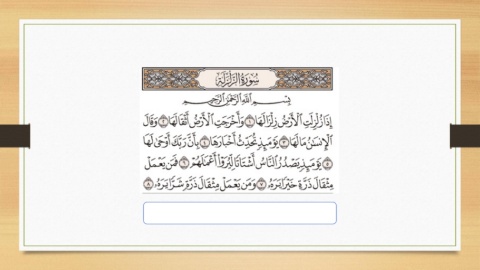 سُورَةُ الزَّلْزَلَةِ
بِسْمِ اللَّهِ الرَّحْمَٰنِ الرَّحِيمِ
إِذَا زُلْزِلَتِ الْأَرْضُ زِلْزَالَهَا ١ وَأَخْرَجَتِ الْأَرْضُ أَثْقَالَهَا ٢ وَقَالَ
الْإِنسَٰنُ مَا لَهَا ٣ يَوْمَئِذٍ تُحَدِّثُ أَخْبَارَهَا ٤ بِأَنَّ رَبَّكَ أَوْحَىٰ لَهَا
٥ يَوْمَئِذٍ يَصْدُرُ النَّاسُ أَشْتَاتًا لِّيُرَوْا أَعْمَٰلَهُمْ ٦ فَمَن يَعْمَلْ
مِثْقَالَ ذَرَّةٍ خَيْرًا يَرَهُۥ ٧ وَمَن يَعْمَلْ مِثْقَالَ ذَرَّةٍ شَرًّا يَرَهُۥ ٨